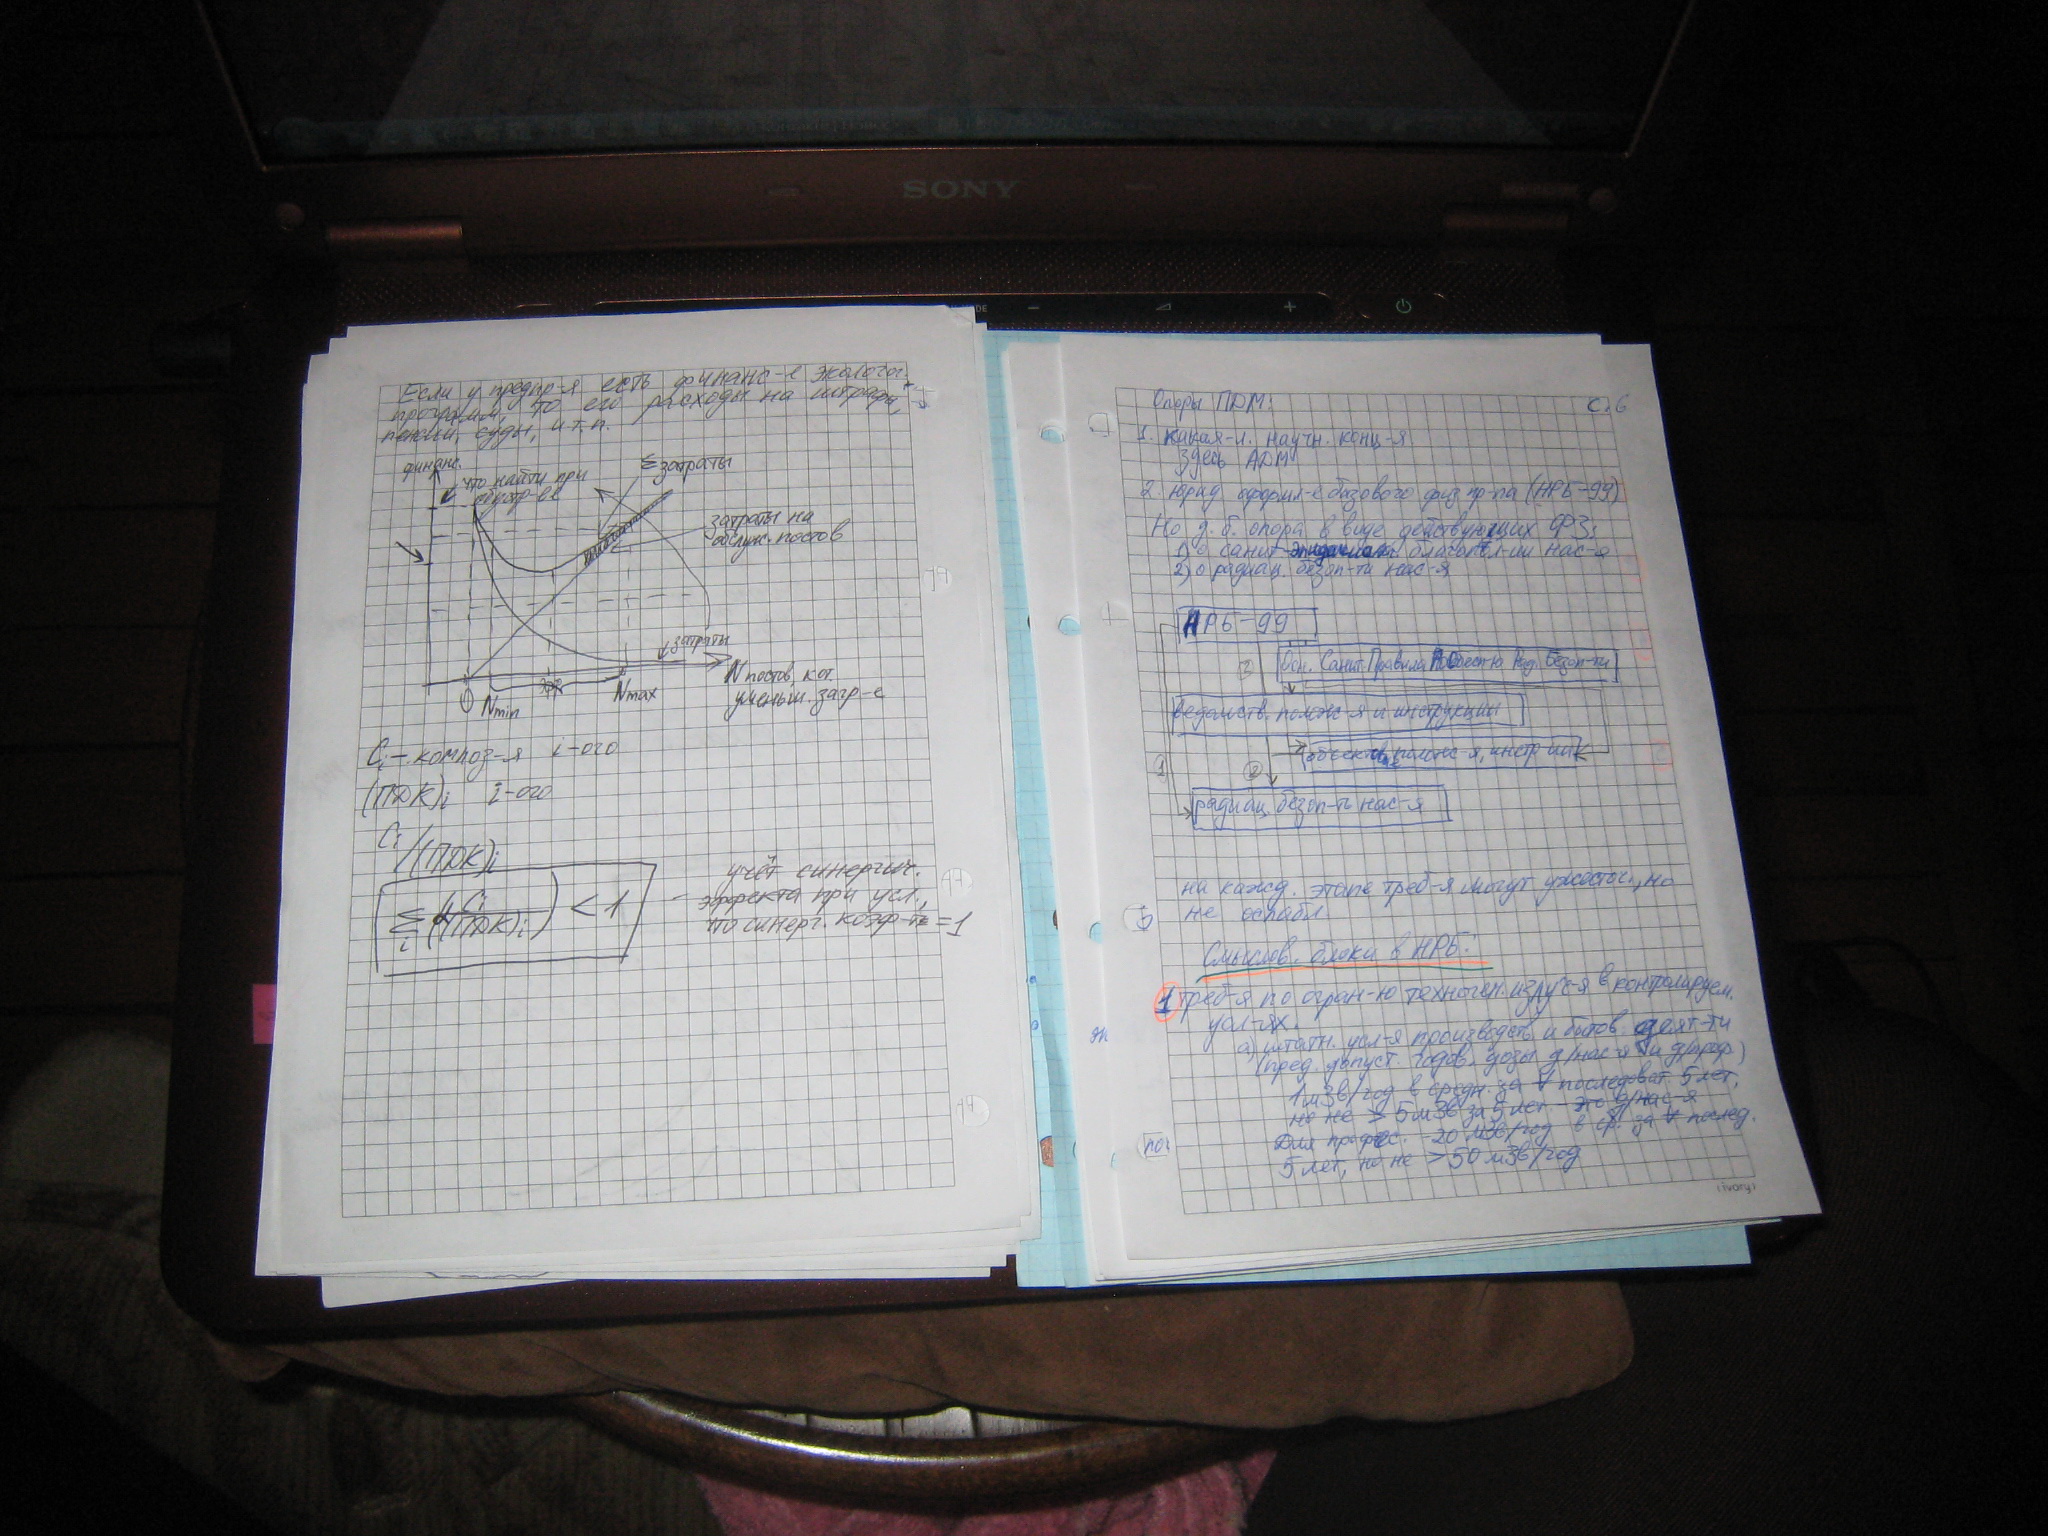 SONY
Если у предпр-я есть финанс-е эколог.
программ, то его расходы на штрафы,
пенсии, суды, и т.п.
финанс.
что найти при
Σ затраты
затраты на
обслуж. постов
затраты
N постов, кот.
уменьш. загр-е
0
Nmin
Nmax
Ci – композ-я i-ого
(ПДК)i i-ого
Ci/(ПДК)i
Σi (Ci/(ПДК)i) < 1
– учёт синергич.
эффекта при усл.,
что синерг. коэф-т = 1
с. 6
Опоры ПДМ:
1. какая-л. научн. конц-я
здесь АДМ
2. юрид. оформл-е базового физ пр-па (НРБ-99)
Но д.б. опора в виде действующих ФЗ:
1) о санит- благопол-ии нас-я
2) о радиац. безоп-ти нас-я
НРБ-99
Осн. Санит. Правила Рад. Безоп-ти
ведомств. полож-я и инструкции
объектов. полож-я, инстр-ии
радиац. безоп-ть нас-я
на кажд. этапе треб-я могут ужесточ., но
не ослабл.
Смыслов. блоки в НРБ:
1 треб-я по огран-ю техноген. излуч-я в контролируем.
усл-ях.
а) штатн. усл-я производств. и бытов. деят-ти
(пред. допуст. годов. дозы д/нас-я и д/проф.)
1 мЗв/год в средн. за ∀ последоват. 5 лет,
но не > 5 мЗв за 5 лет - это д/нас-я
Для профес. – 20 мЗв/год в ср. за ∀ послед.
5 лет, но не > 50 мЗв/год
(ivory)